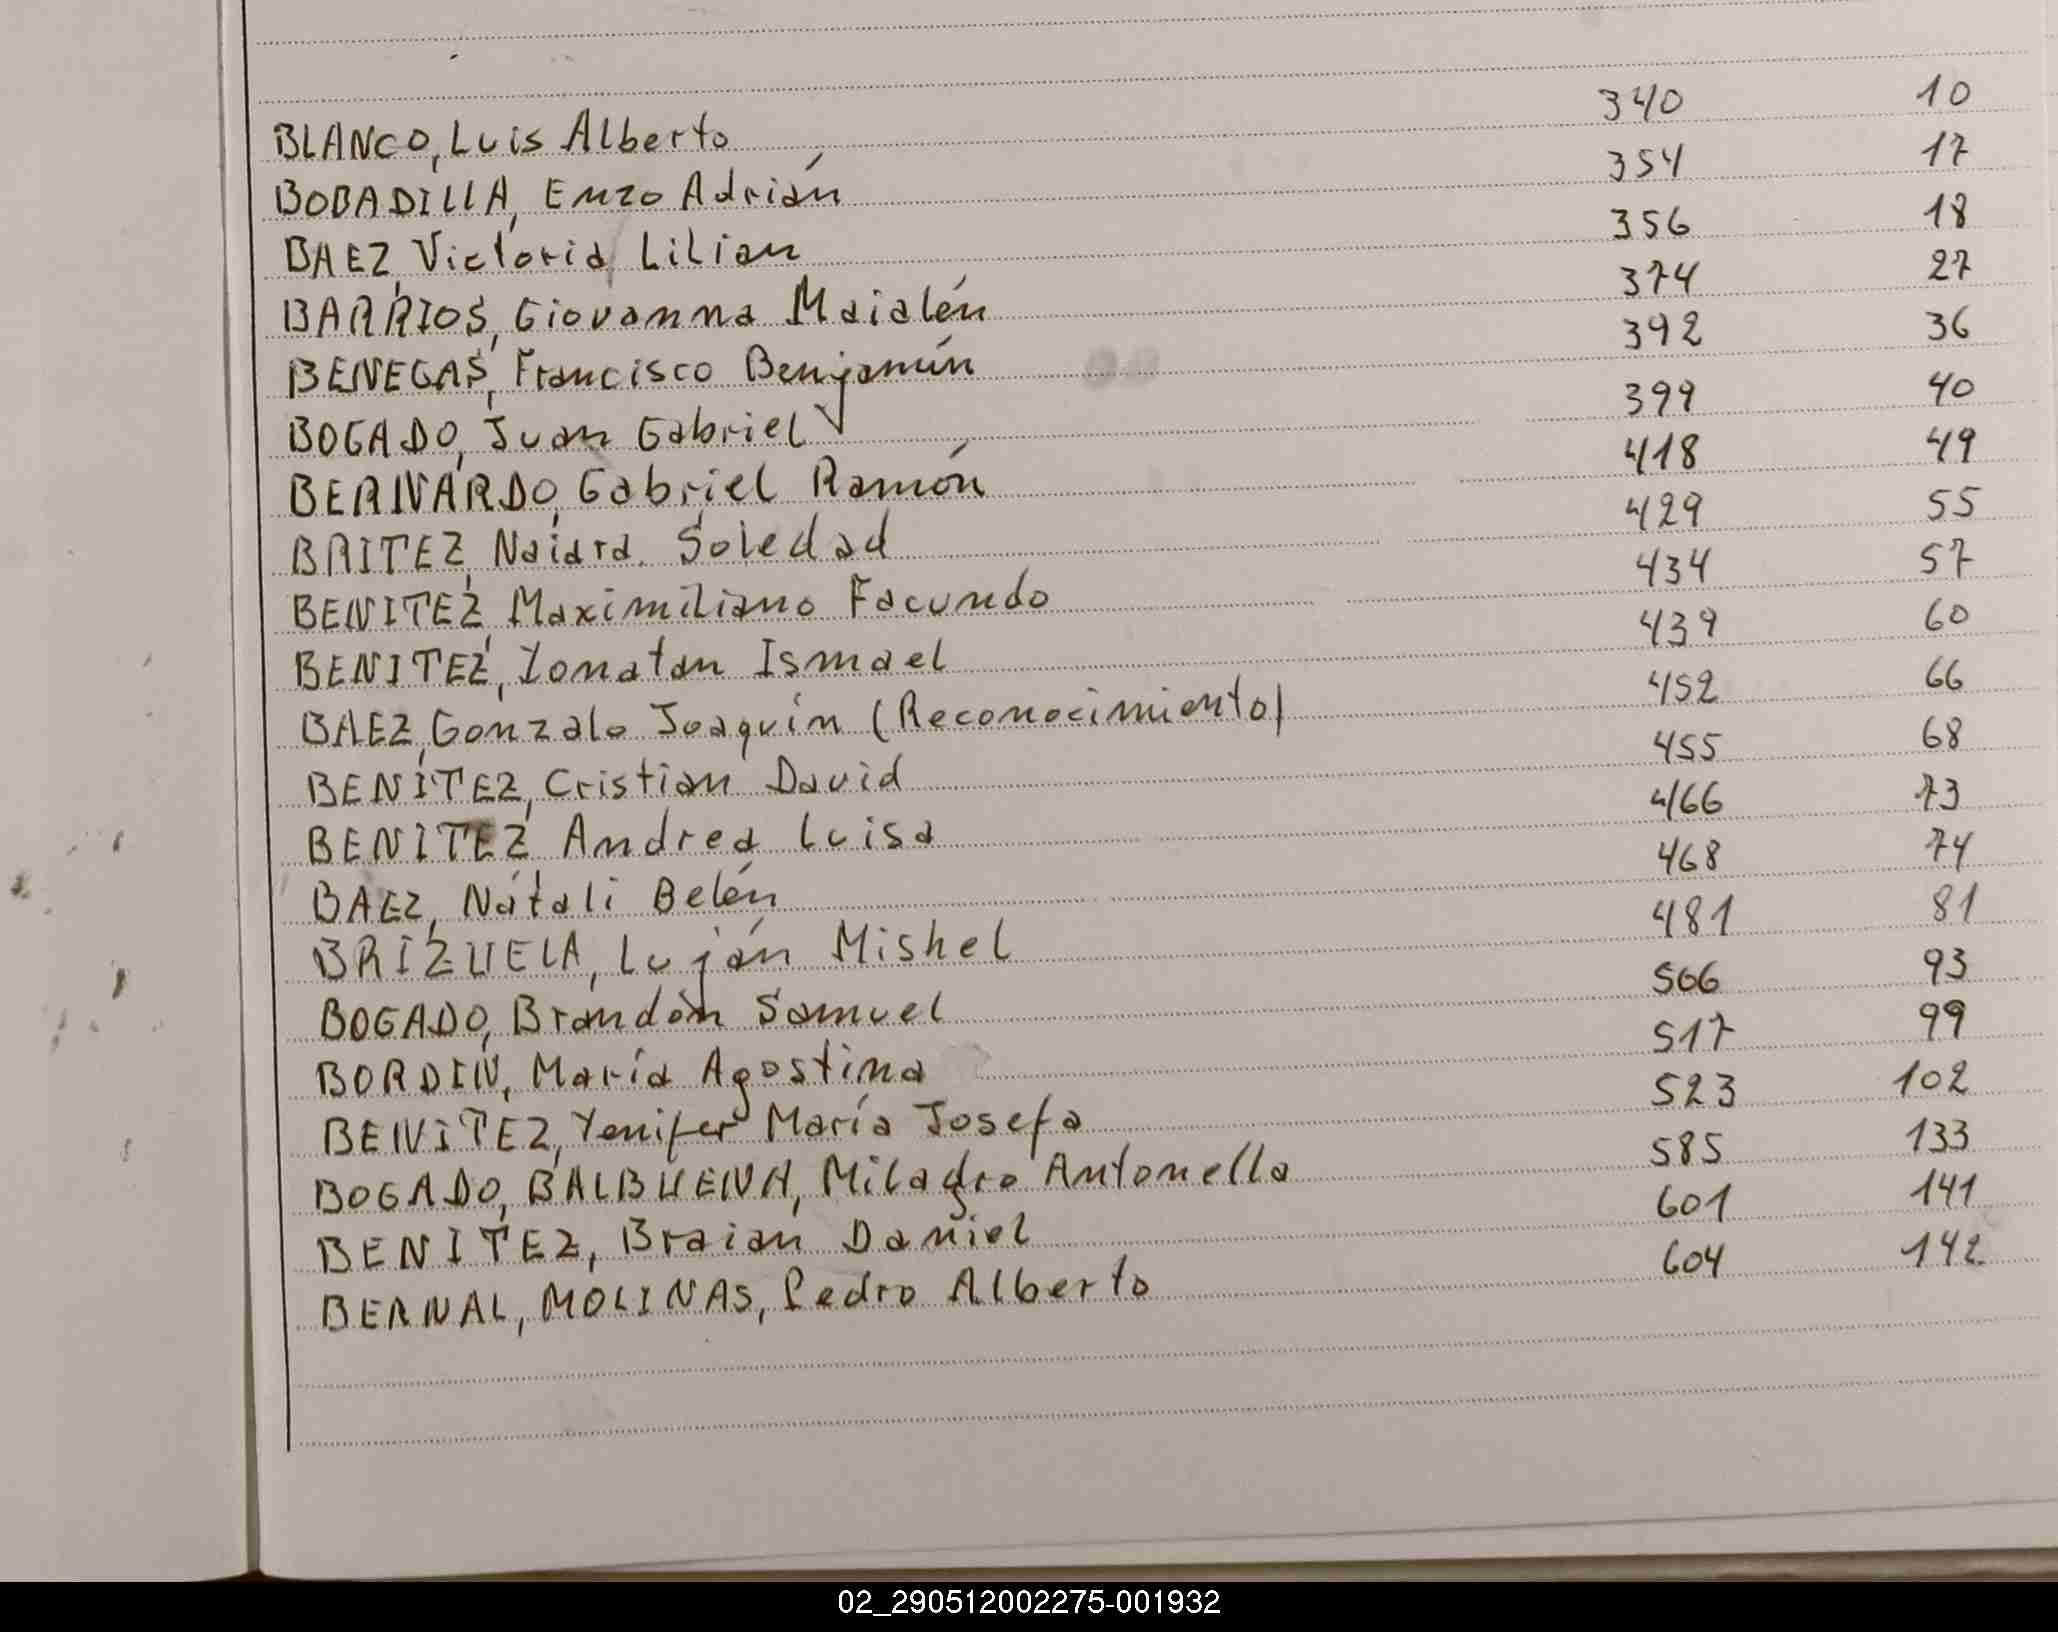 BLANCO, Luis Alberto 340 10
BOBADILLA, Enzo Adrián 354 17
BAEZ, Victoria Lilian 356 18
BARRIOS, Giovanna Maialén 374 27
BENEGAS, Francisco Benjamín 392 36
BOGADO, Juan Gabriel 399 40
BERNARDO, Gabriel Ramón 418 49
BRITEZ, Naiara Soledad 429 55
BENITEZ, Maximiliano Facundo 434 57
BENITEZ, Yonatan Ismael 439 60
BAEZ, Gonzalo Joaquín (Reconocimiento) 452 66
BENÍTEZ, Cristian David 455 68
BENITEZ Andrea Luisa 466 73
BAEZ, Natali Belén 468 74
BRIZUELA, Luján Mishel 481 81
BOGADO, Brandon Samuel 506 93
BORDIN, María Agostina 517 99
BENITEZ, Yenifer María Josefa 523 102
BOGADO, BALBUENA, Milagro Antonella 585 133
BENITEZ, Braian Daniel 601 141
BERNAL, MOLINAS, Pedro Alberto 604 142
02_290512002275-001932